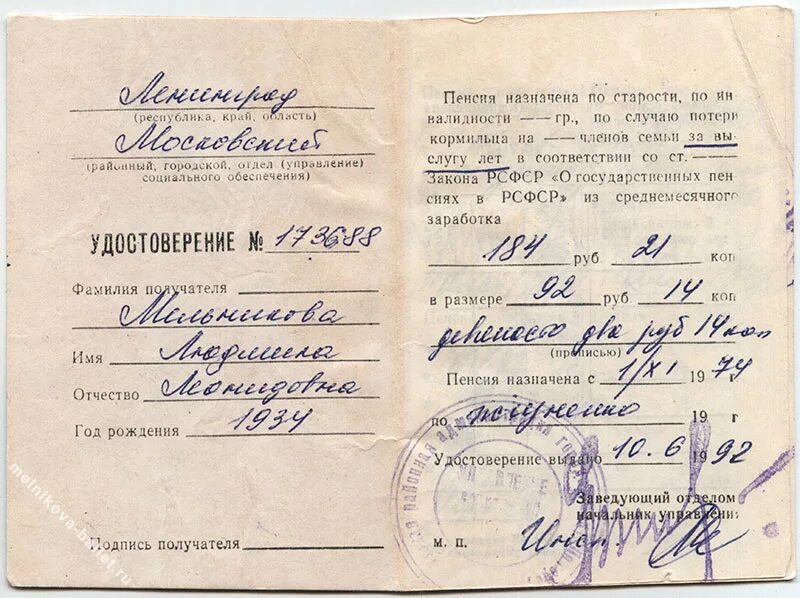 Ленинград
(республика, край, область)
Московский
(районный, городской, отдел (управление)
социального обеспечения)
УДОСТОВЕРЕНИЕ № 173688
Фамилия получателя
Мельникова
Имя Людмила
Отчество Леонидовна
Год рождения 1934
Подпись получателя
Пенсия назначена по старости, по ин
валидности — гр., по случаю потери
кормильца на — членов семьи за вы
слугу лет в соответствии со ст. —
Закона РСФСР «О государственных пен
сиях в РСФСР» из среднемесячного
заработка
184 руб 21 коп
в размере 92 руб 14 коп
девяносто два руб 14 коп
(прописью)
Пенсия назначена с 1/XI 1974 г
по пожизненно 19 г
Удостоверение выдано 10.6 1992
Заведующий отделом
начальник управлени
м. п. Инсп.
районная администрация
melnikova-ballet.ru